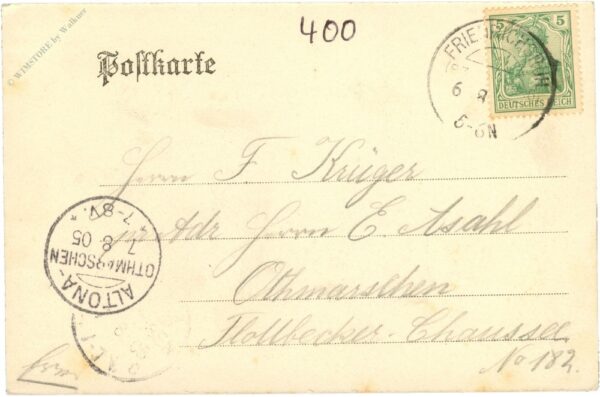 © WIMSTORE by Walkner
400
Postkarte
5
DEUTSCHES REICH
6 8
6-6N
Herrn F Krüger
pr Adr Herrn E Asahl
Othmarschen
Flottbecker-Chaussee
No 182.
ALTONA-
OTHMARSCHEN
7 8 05
7-8V.